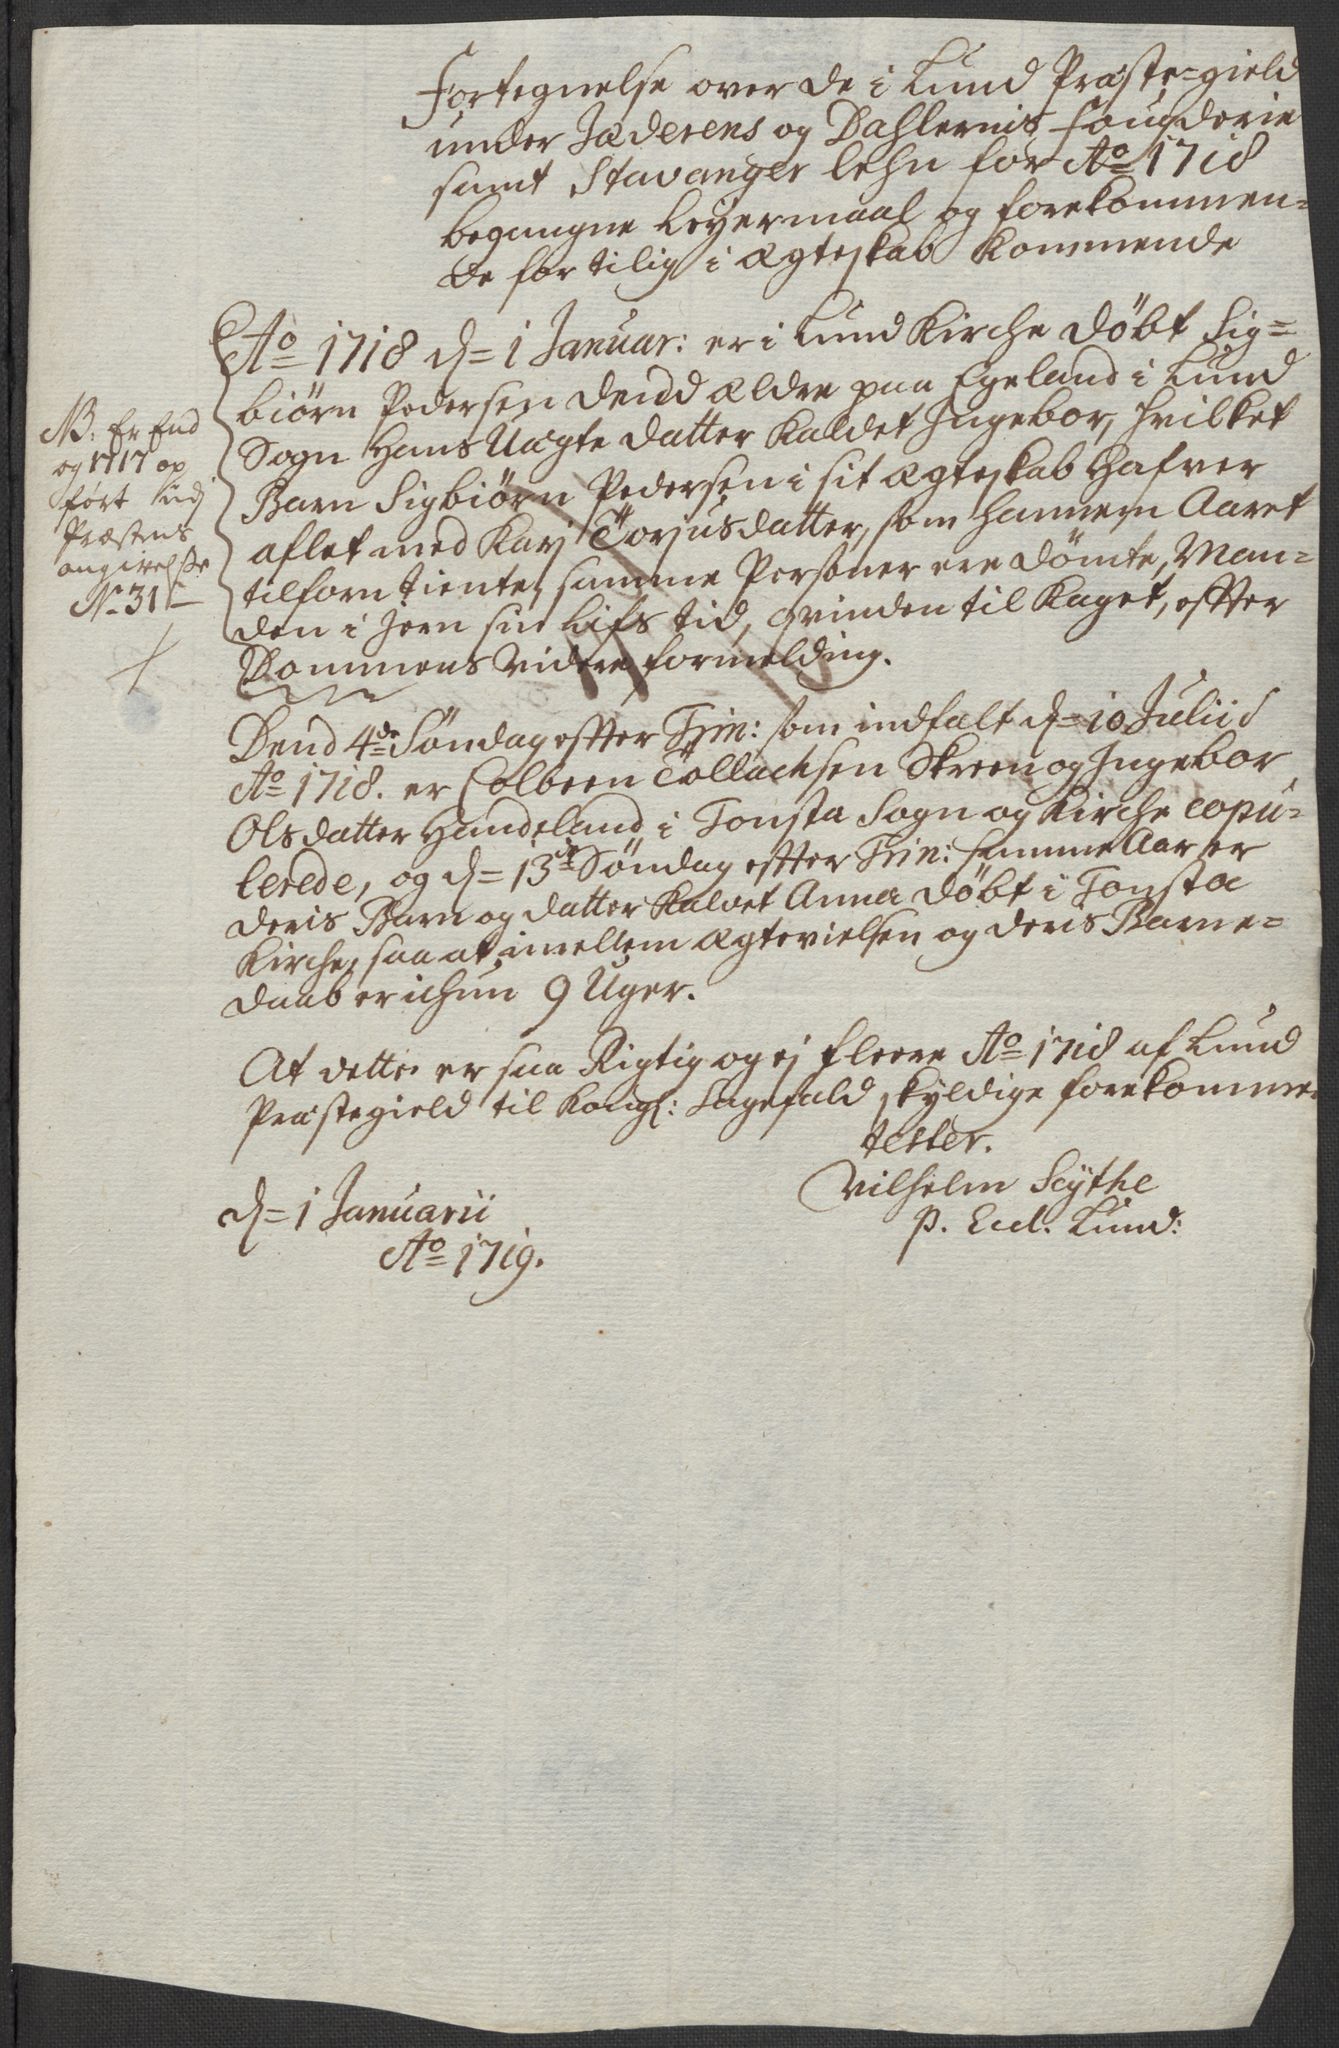 Fortegnelse over de i Lund Præste=gield
under Jæderens og Dahlernis fougderie
samt Stavanger lehn for Ao 1718
begangne Leyermaal og forekommen=
de for tilig i ægteskab kommende
Ao 1718 d= 1 Januar: er i Lund Kirche döbt Sig=
biörn Pedersen dend ældre paa Egeland i Lund
Sogn Hans Uægte datter kaldet Ingebor, hvilket
Barn Sigbiörn Pedersen i sit ægteskab hafver
aflet med Karj Torjusdatter, som hannem Aaret
tilforn tiente, samme Personer ere dömte, Man=
den i Jern sin Lifs tid, qvinden til Kaget, effter
Dommens videre formelding.
NB: Er End
og 1717 op
fört udj
Præstens
angivelsse
No 31
Dend 4de Söndag effter Trin: som indfalt d= 10 Julii
Ao 1718. er Colbeen Tollachsen Skreen og Ingebor
Olsdatter Handeland i Tonsta Sogn og Kirche copu=
lerede, og d= 13de Söndag effter Trin: samme Aar er
deris Barn og datter kaldet Anna döbt i Tonsta
Kirche, saa at imellem ægtevielsen og deris Barne=
daab er ichun 9 Uger.
At dette er saa Rigtig og ej fleere Ao 1718 af Lund
Præstegield til Kongl: Sagefald skyldige forekommer
tester.
Vilhelm Scÿthe
P. Eccl. Lund:
d= 1 Januarii
Ao 1719.